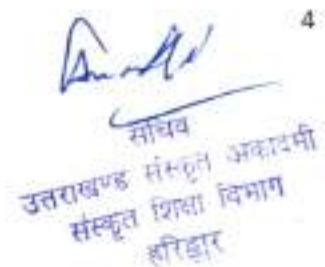 4
सचिव
उत्तराखण्ड संस्कृत अकादमी
संस्कृत शिक्षा विभाग
हरिद्वार